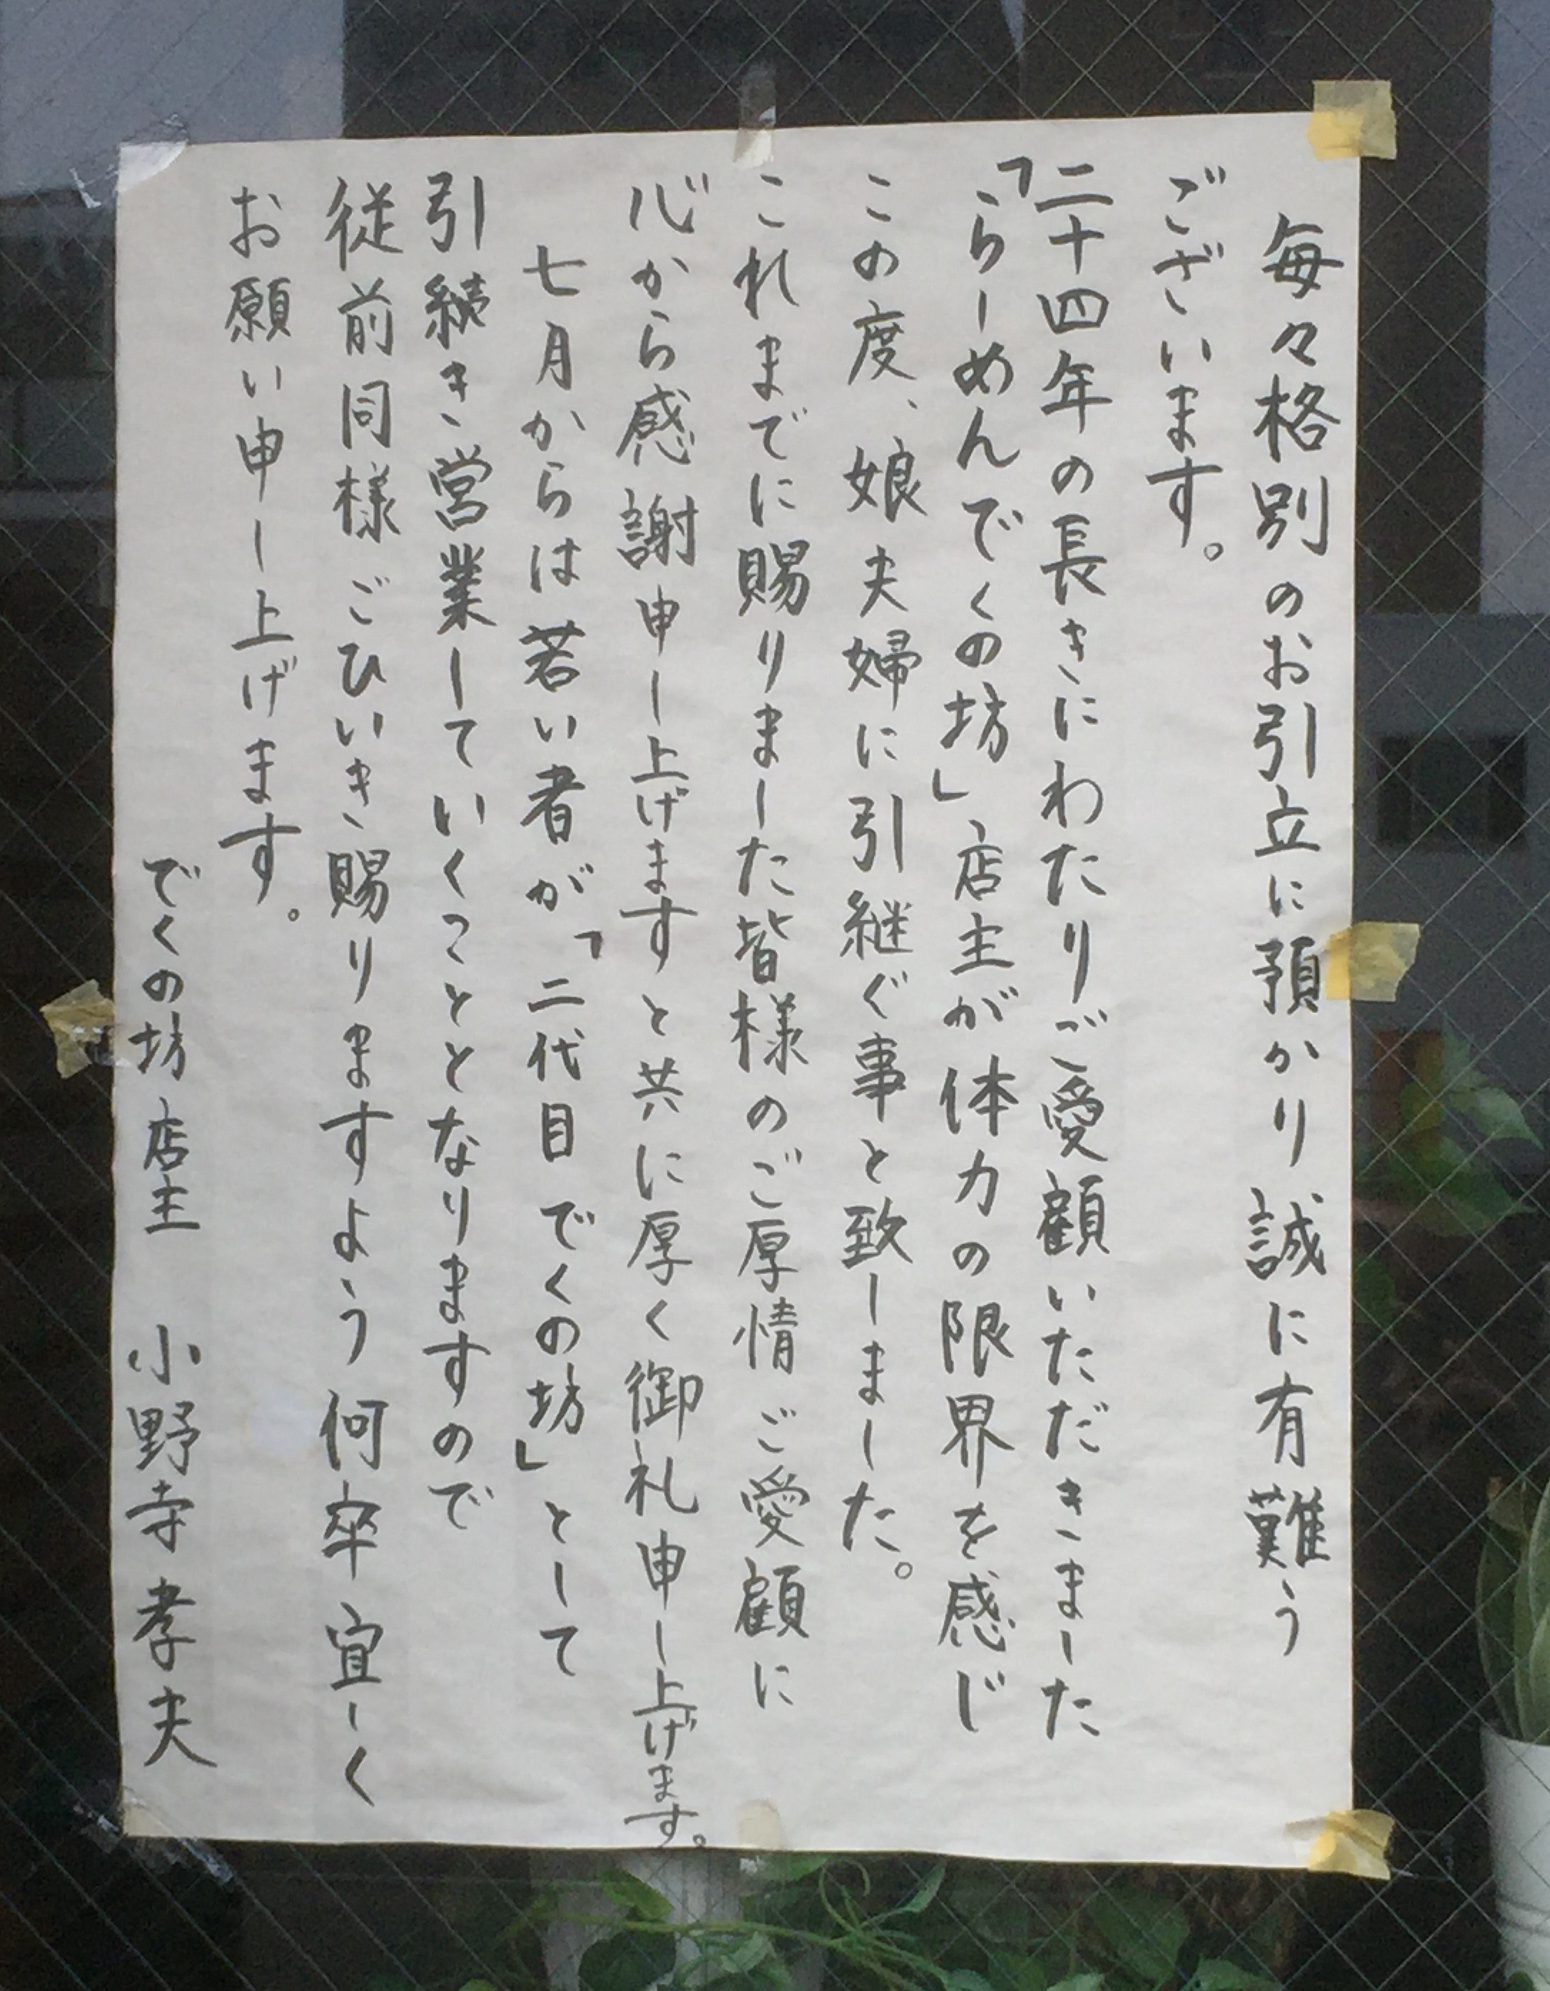 毎々格別のお引立に預かり誠に有難う
ございます。
二十四年の長きにわたりご愛顧いただきました
「らーめんでくの坊」、店主が体力の限界を感じ
この度、娘夫婦に引継ぐ事と致しました。
これまでに賜りました皆様のご厚情ご愛顧に
心から感謝申し上げますと共に厚く御礼申し上げます。
七月からは若い者が「二代目でくの坊」として
引続き営業していくこととなりますので
従前同様ごひいき賜りますよう何卒宜しく
お願い申し上げます。
でくの坊 店主 小野寺孝夫